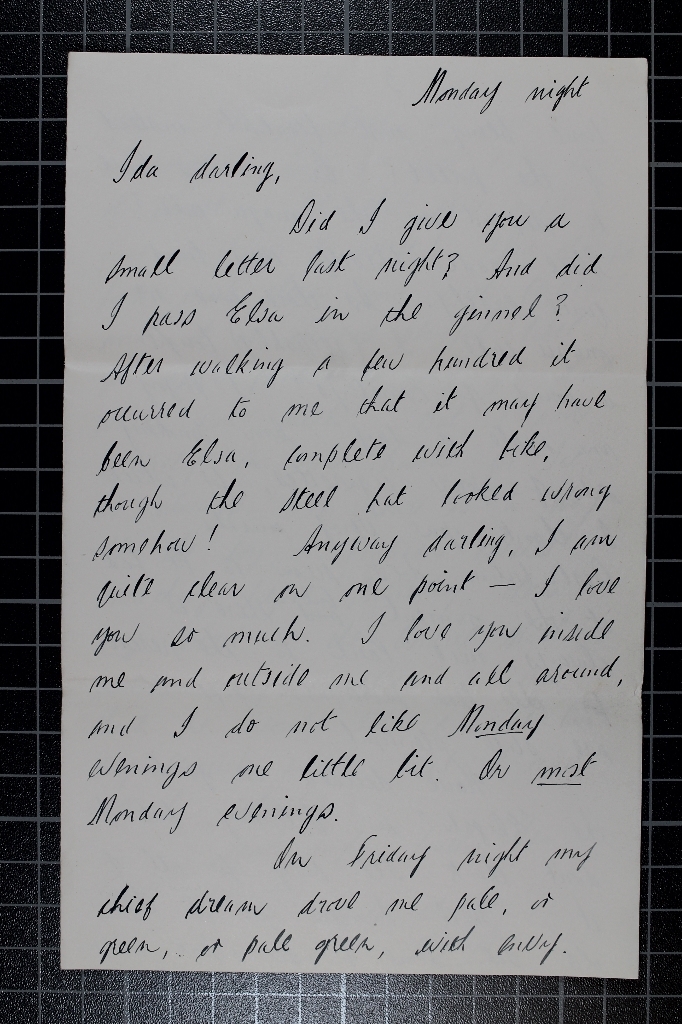 Monday night
Ida darling,
Did I give you a
small letter last night? And did
I pass Elsa in the ginnel?
After walking a few hundred it
occurred to me that it may have
been Elsa, complete with bike,
though the steel hat looked wrong
somehow! Anyway darling, I am
quite clear on one point — I love
you so much. I love you inside
me and outside me and all around,
and I do not like Monday
evenings one little bit. Or most
Monday evenings.
On Friday night my
chief dream drove me pale, or
green, or pale green, with envy.